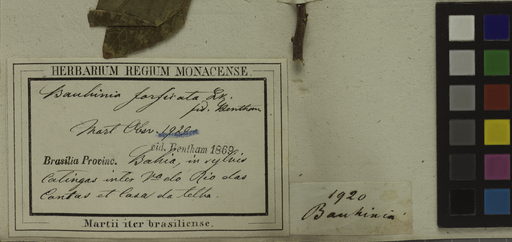 HERBARIUM REGIUM MONACENSE.
Bauhinia forficata Lk.
fid. Bentham
Mart. Obser. 1920
vid. Bentham 1869.
Brasilia Provinc. Bahia, in sylvis
Catingas inter Va do Rio das
Contas et Casa da telha.
Martii iter brasiliense.
1920
Bauhinia